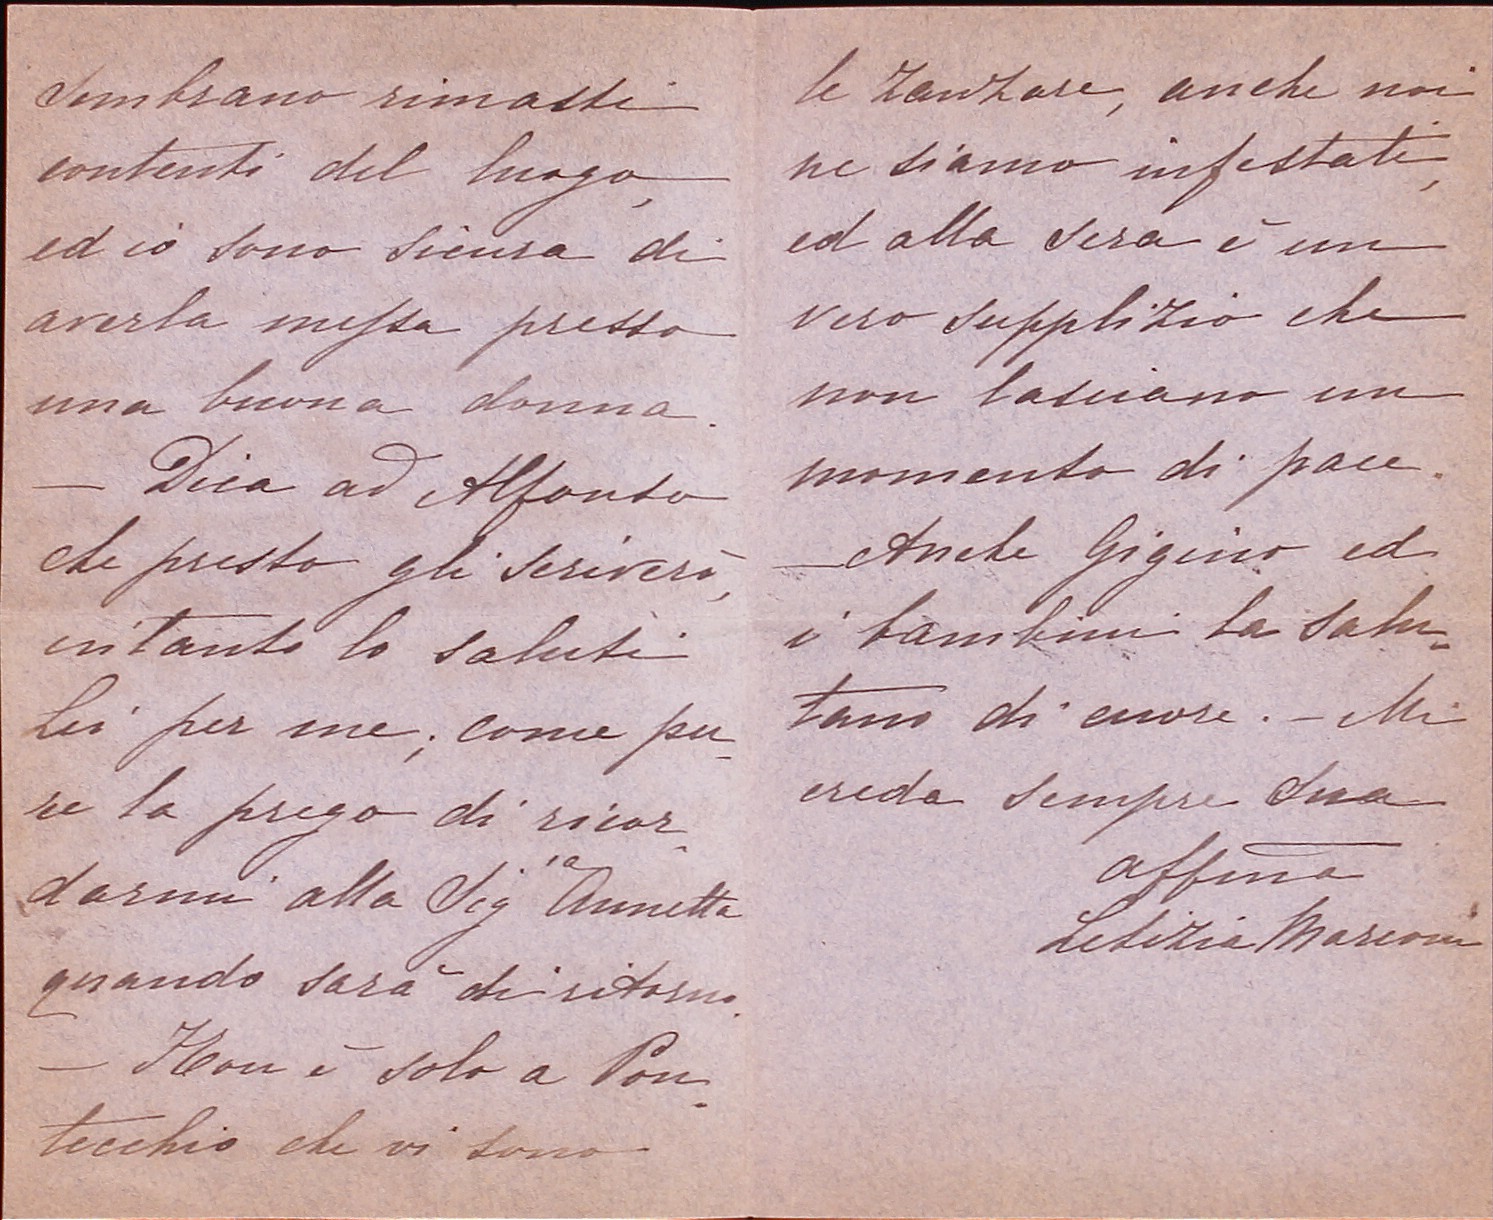 sembrano rimasti
contenti del luogo,
ed io sono sicura di
averla messa presso
una buona donna.
— Dica ad Alfonso
che presto gli scriverò,
intanto lo saluti
Lei per me; come pu-
re la prego di ricor-
darmi alla Sigra Annetta
quando sarà di ritorno.
— Non è solo a Pon-
tecchio che vi sono
le zanzare, anche noi
ne siamo infestati,
ed alla sera è un
vero supplizio che
non lasciano un
momento di pace.
— Anche Gigino ed
i bambini la salu-
tano di cuore. — Mi
creda sempre Sua
affma
Letizia Marconi